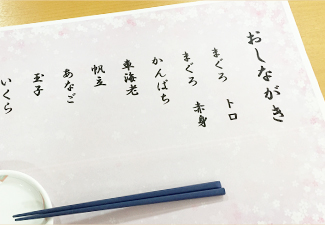 おしながき
まぐろ トロ
まぐろ 赤身
かんぱち
車海老
帆立
あなご
玉子
いくら